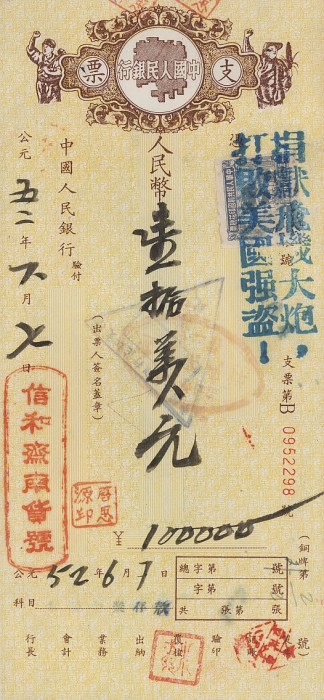 支
中國人民銀行
票
捐獻飛機大炮，
打敗美國强盜！
號
支票第B 0952298 號
人民幣壹拾萬元
¥ 100000
中國人民銀行 驗付
(出票人簽名蓋章)
公元五二年六月七日
信和齋南貨號
(銅牌第
號)
總字第 號
字第 號
共 張第 張
公元52年6月7日
科目
存款
行長
會計
業務
出納
覆核
驗印